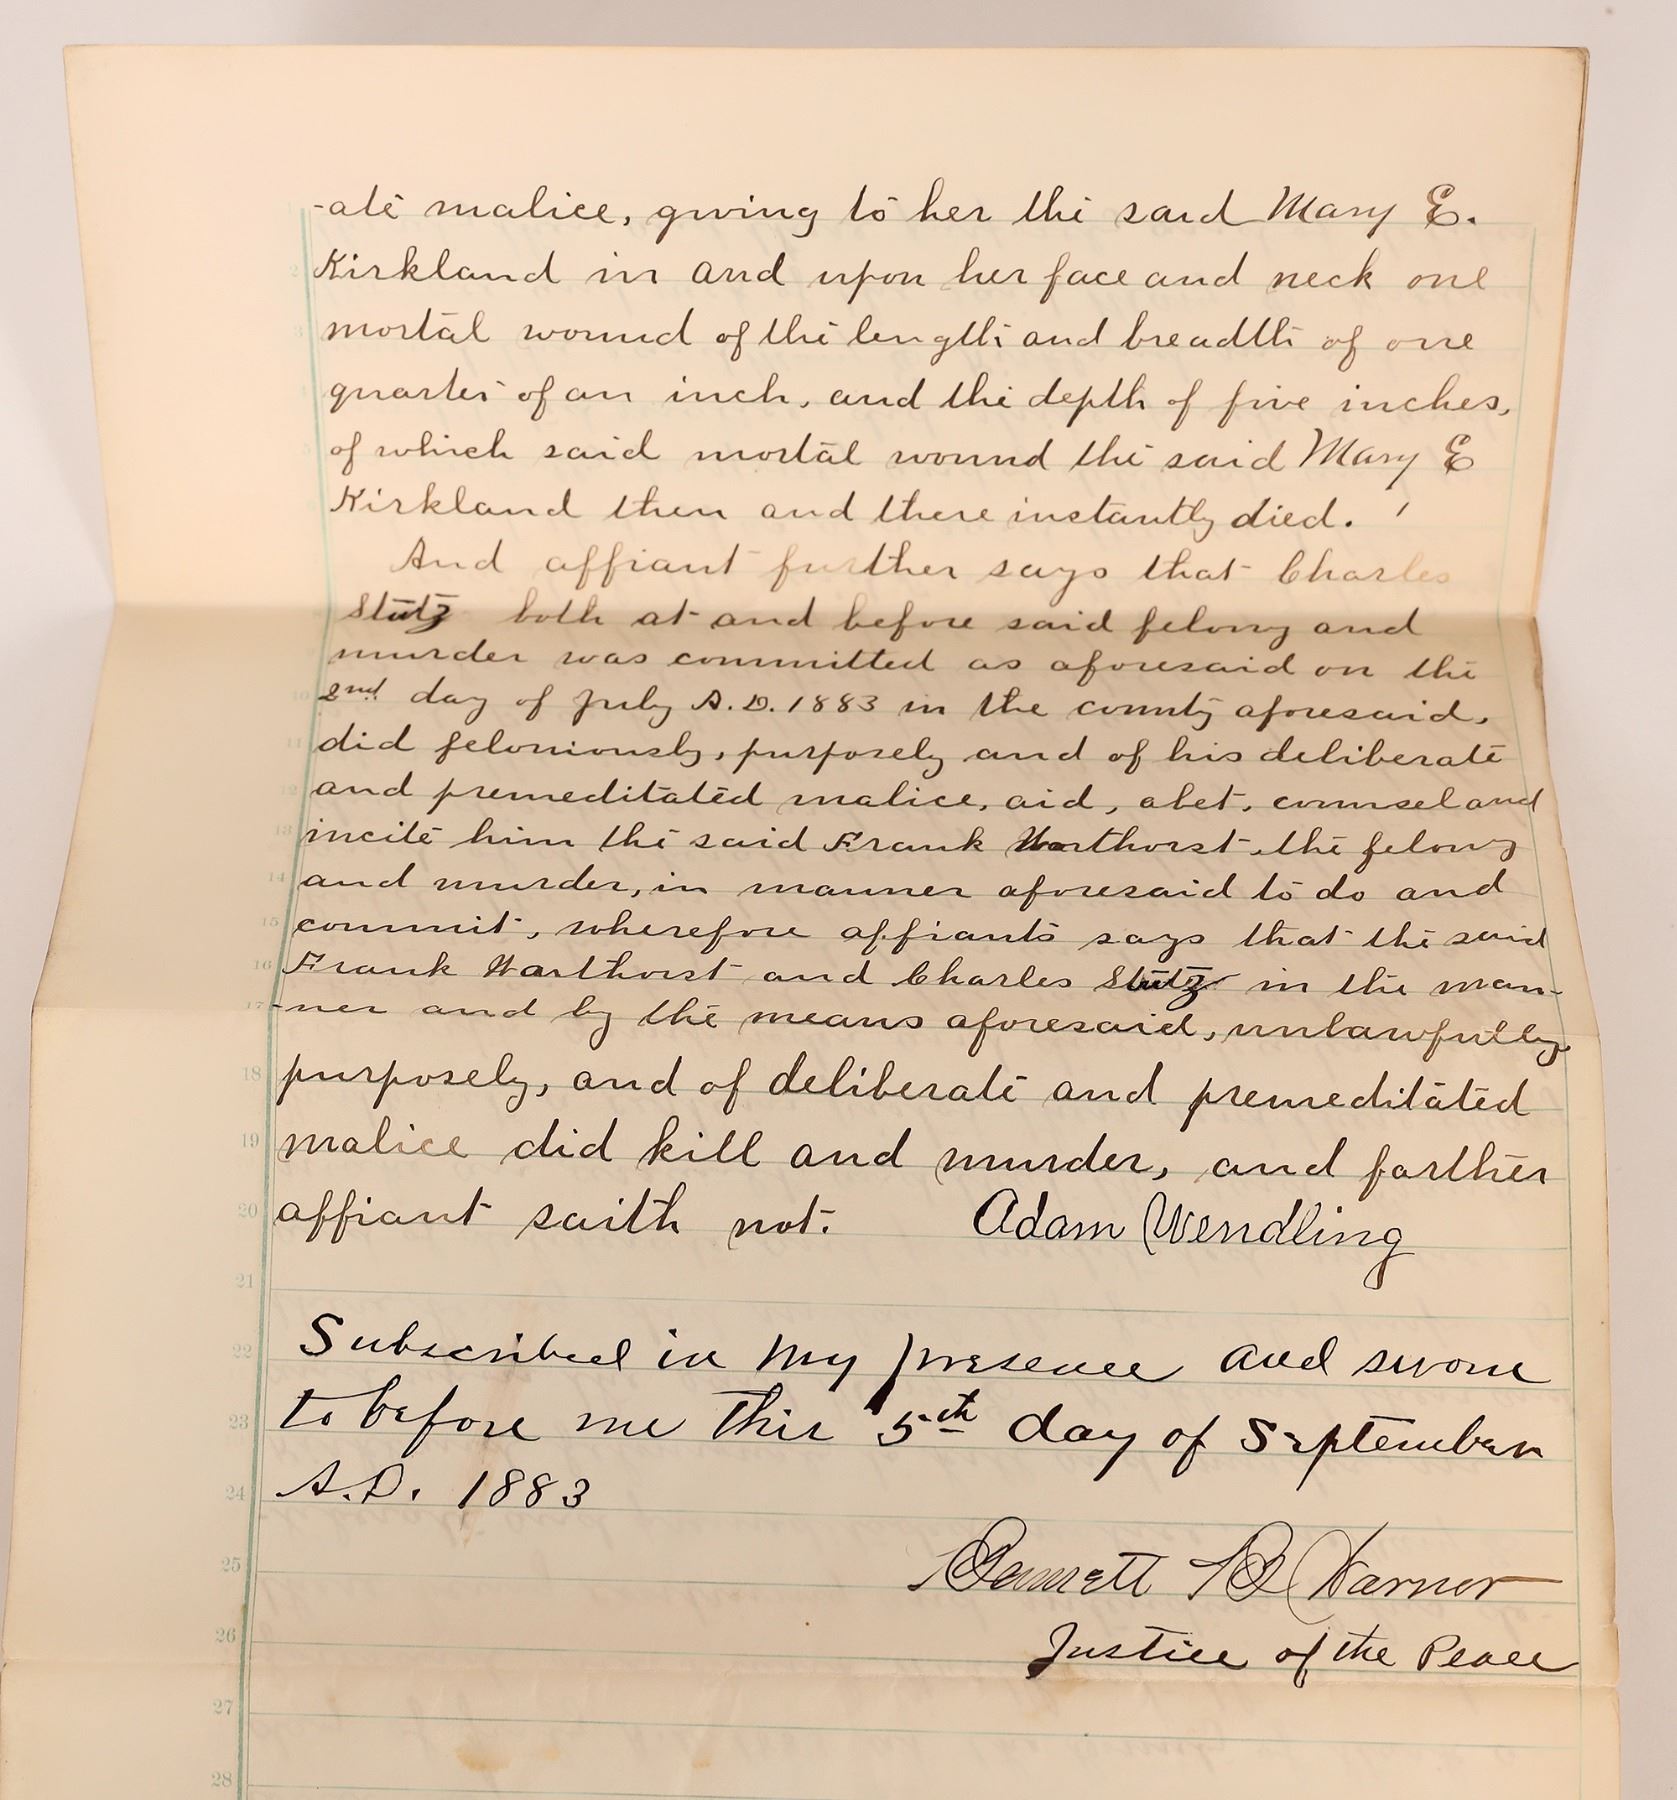 -ate malice, giving to her the said Mary E.
Kirkland in and upon her face and neck one
mortal wound of the length and breadth of one
quarter of an inch, and the depth of five inches,
of which said mortal wound the said Mary E
Kirkland then and there instantly died.
And affiant further says that Charles
Stutz both at and before said felony and
murder was committed as aforesaid on the
2nd day of July A.D. 1883 in the county aforesaid,
did feloniously, purposely and of his deliberate
and premeditated malice, aid, abet, counsel and
incite him the said Frank Warthorst the felony
and murder, in manner aforesaid to do and
commit, wherefore affiants says that the said
Frank Warthorst and Charles Stutz in the man-
-ner and by the means aforesaid, unlawfully
purposely, and of deliberate and premeditated
malice did kill and murder, and farther
affiant saith not. Adam Wendling
Subscribed in my presence and swore
to before me this 5th day of September
A.D. 1883
Justice of the Peace
10
11
12
13
14
15
16
17
18
19
20
21
22
23
24
25
26
27
28